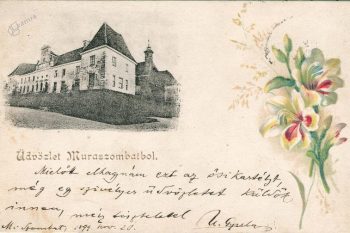 Üdvözlet Muraszombatból.
Mielőtt elhagnám ezt az ősi kastélyt,
még egy szívelyes üdvözletet küldök
innen, mély tisztelettel
M. Szombat, 1899 nov. 20.